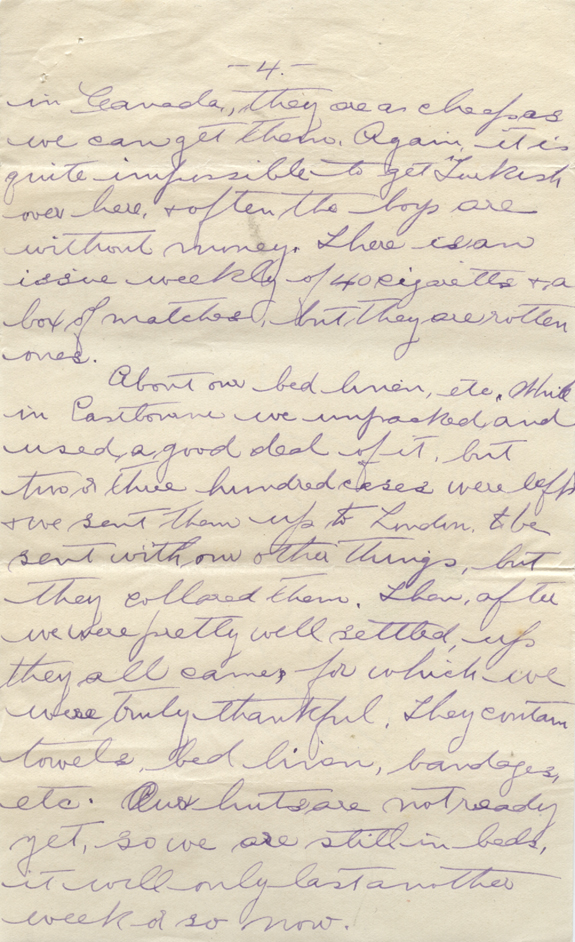 -4.-
in Canada, they are as cheap as
we can get them. Again, it is
quite impossible to get Turkish
over here, & often the boys are
without money. There is an
issue weekly of 40 cigaretts & a
box of matches, but they are rotten
ones.
About our bed linen, etc. While
in Eastbourne we unpacked and
used a good deal of it, but
two or three hundred cases were left
& we sent them up to London, to be
sent with our other things, but
they collared them. Then, after
we were pretty well settled, up
they all came, for which we
were truly thankful. They contain
towels, bed linen, bandages,
etc. Our huts are not ready
yet, so we are still in beds,
it will only last another
week or so now.